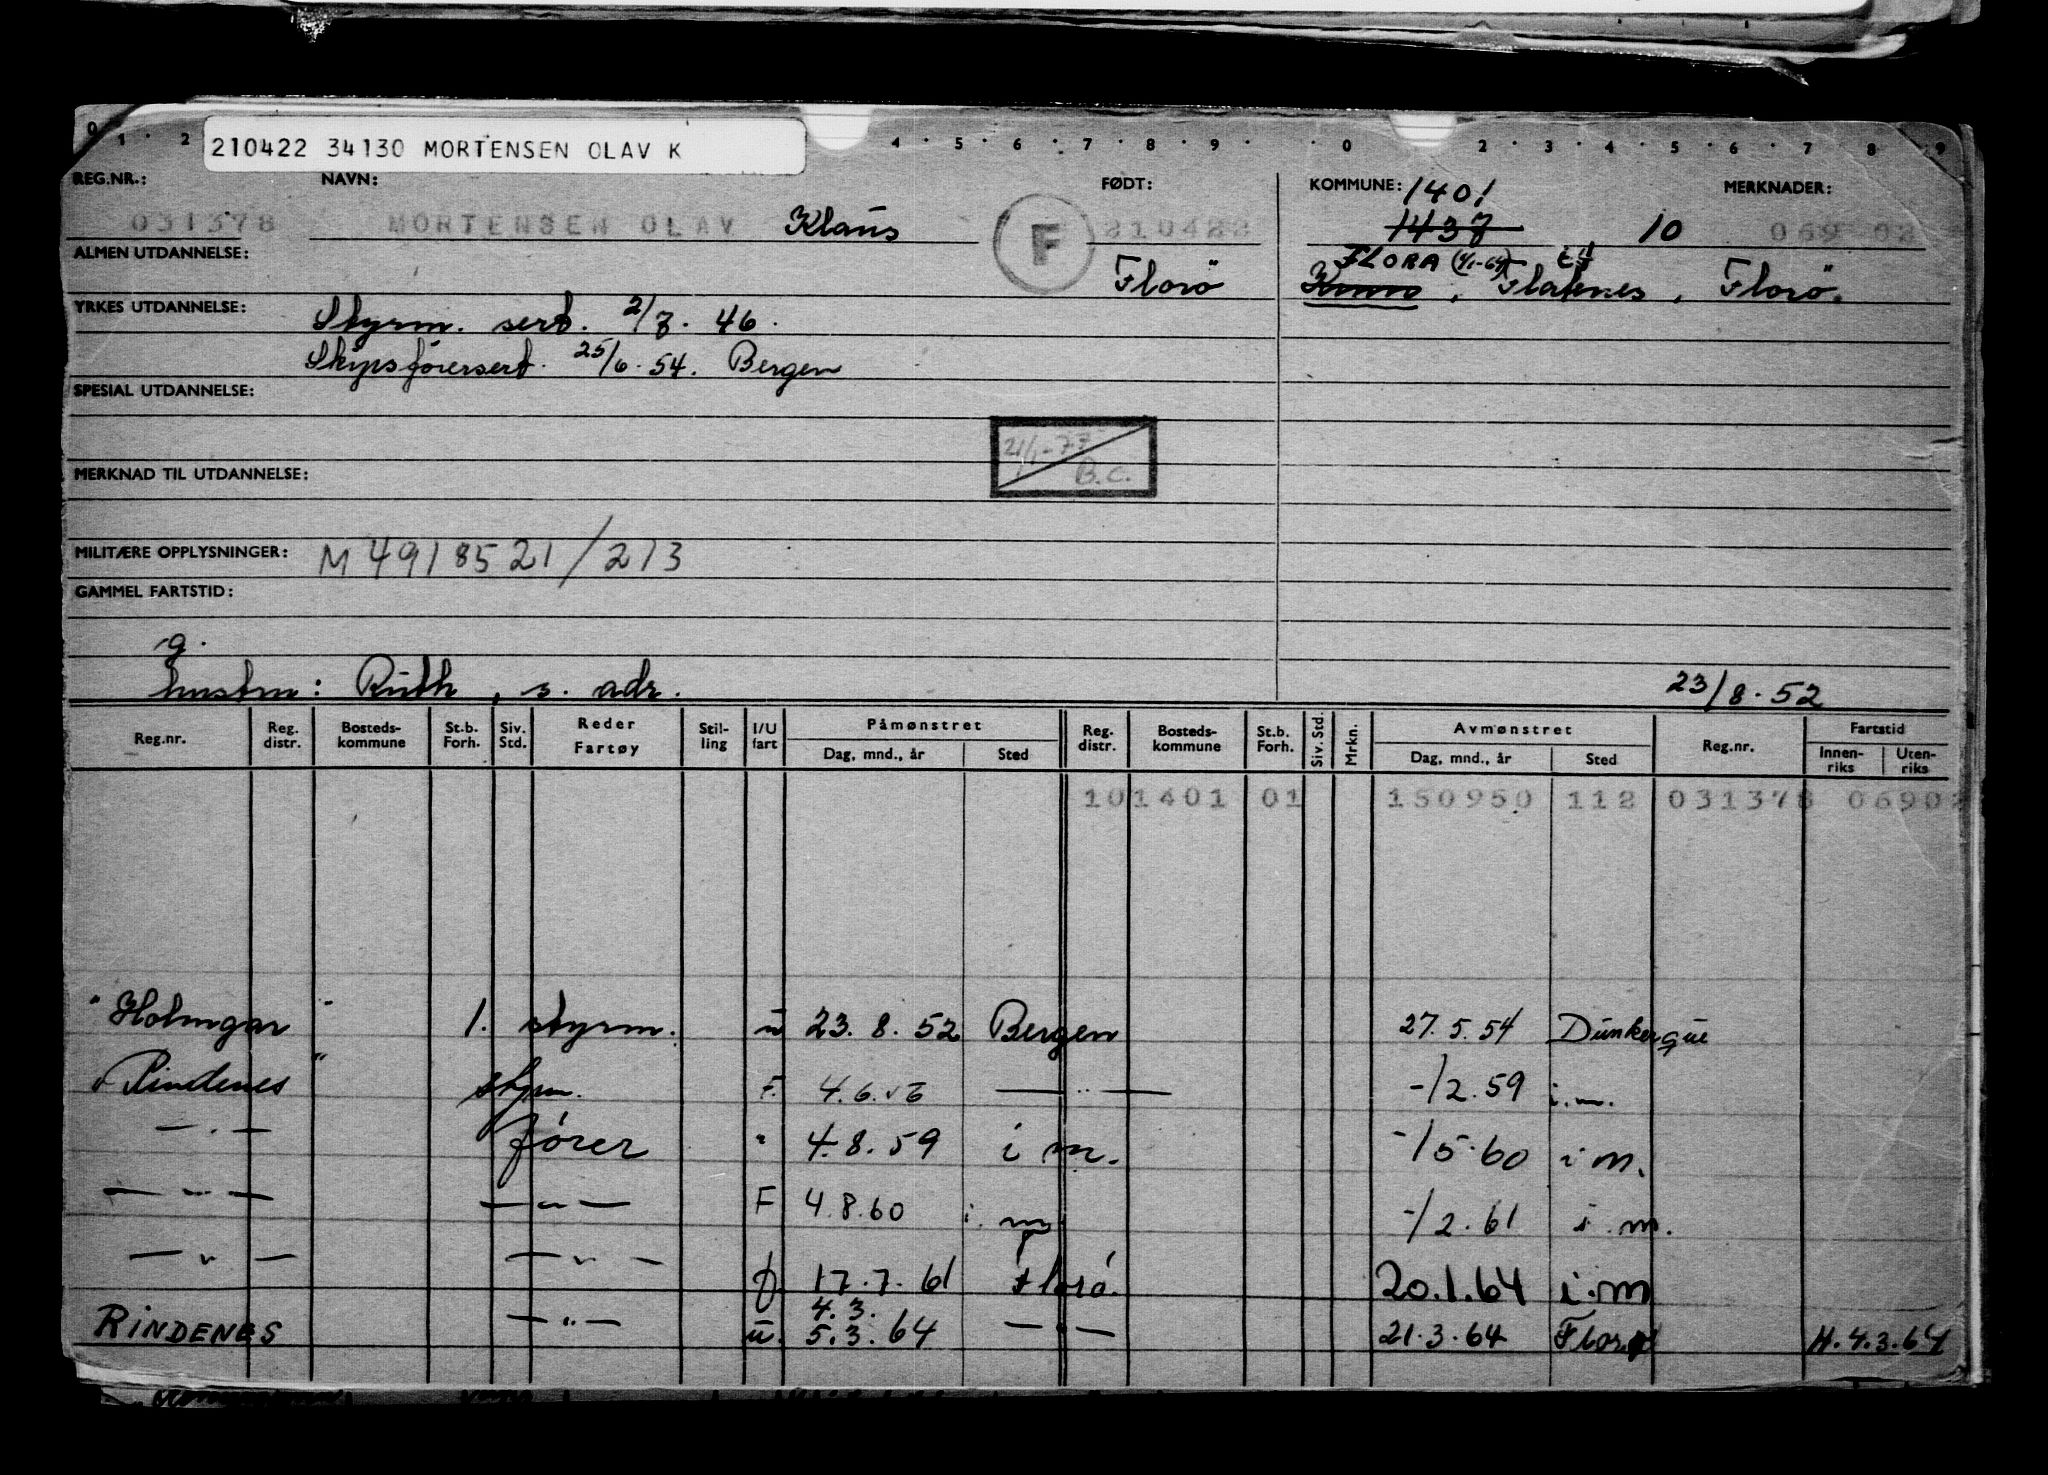 0 1 · 2 4 · 5 · 6 · 7 · 8 · 9 · · 0 2 · 3 · 4 · 5 · 6 · 7 8 9
210422 34130 MORTENSEN OLAV K
REG.NR.: NAVN: FØDT: KOMMUNE: 1401 MERKNADER:
031378 MORTENSEN OLAV Klaus F 210422 1437 10 069 02
ALMEN UTDANNELSE: Florö FLORA (1/1-64)
Kinn, Flatenes, Florö.
YRKES UTDANNELSE: Styrm. sert. 2/7. 46.
Skipsförersert. 25/6. 54. Bergen
SPESIAL UTDANNELSE:
21/1-77 B.C.
MERKNAD TIL UTDANNELSE:
MILITÆRE OPPLYSNINGER: M 4918521/213
GAMMEL FARTSTID:
g.
hustru: Ruth, s. adr. 23/8. 52
Reg.nr. Reg. distr. Bosteds-kommune St.b. Forh. Siv. Std. Reder Fartøy Stil-ling I/U fart Påmønstret Dag, mnd., år Sted Reg. distr. Bosteds-kommune St.b. Forh. Siv. Std. Mrkn. Avmønstret Dag, mnd., år Sted Reg.nr. Fartstid Innen-riks Uten-riks
101401 01 150950 112 031378 0690
"Holmgar" 1. styrm. u 23. 8. 52 Bergen 27. 5. 54 Dunkerque
"Rindenes" styrm. F. 4.6.56 — " — -/2.59 i.m.
— " — fører " 4.8.59 i m. -/5.60 i m.
— " — — " — F 4.8.60 i. m. -/2.61 i.m.
— " — — " — f 17.7.61 Florø. 20.1.64 i.m
4.3.
RINDENES — " — u. 5.3.64 — " — 21.3.64 Florø H. 4.3.64